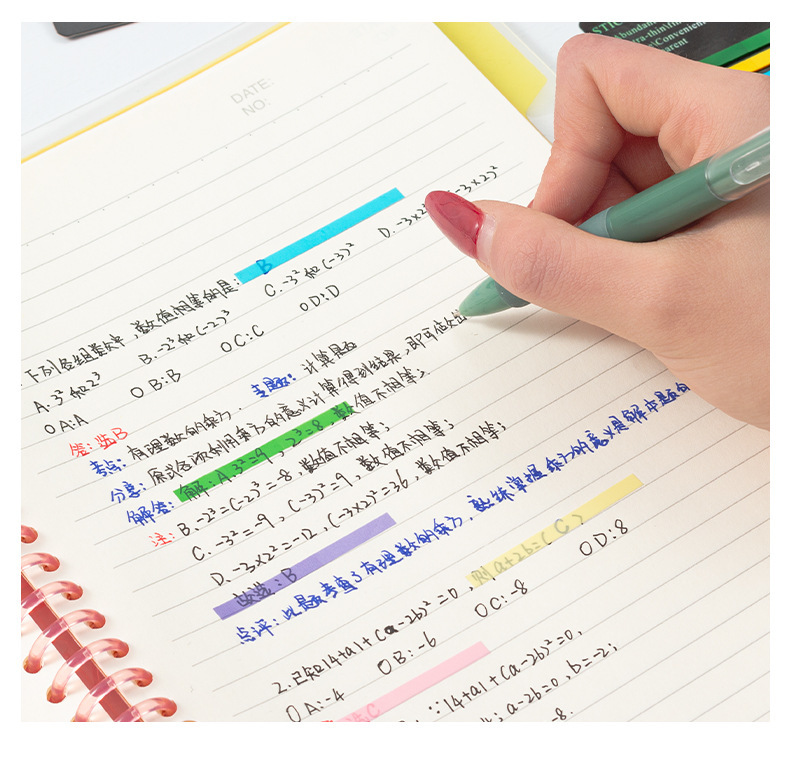 DATE:
NO:
下列各组数中,数值相等的是: B
A.3²和2³ B.-2³和(-2)³ C.-3²和(-3)² D.-3×2²
O A:A O B:B O C:C O D:D
答:选B
考点:有理数的乘方, 专题:计算题
分享:原式各项利用乘方的意义计算得到结果,即可
解答:解:A.3²=9,2³=8,数值不相等;
注:B.-2³=(-2)³=-8,数值不相等;
C.-3²=-9,(-3)²=9,数值不相等;
D.-3×2²=-12,(-3×2)²=36,数值不相等;
故选:B
点评:此题考查了有理数的乘方,熟练掌握乘方的意义是解本题的
2.已知|4+a|+(a-2b)²=0,则a+2b=( C )
O A:-4 O B:-6 O C:-8 O D:8
选C
∵|4+a|+(a-2b)²=0,
a-2b=0,b=-2;
-8.